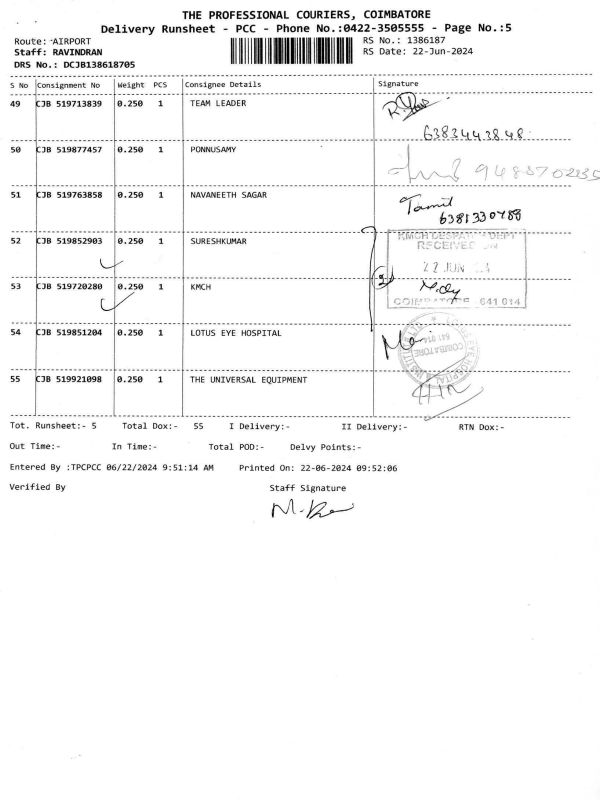 THE PROFESSIONAL COURIERS, COIMBATORE
Delivery Runsheet - PCC - Phone No.:0422-3505555 - Page No.:5
Route: AIRPORT
RS No.: 1386187
Staff: RAVINDRAN
RS Date: 22-Jun-2024
DRS No.: DCJB138618705
S No Consignment No Weight PCS Consignee Details Signature
49 CJB 519713839 0.250 1 TEAM LEADER
6383443848
50 CJB 519877457 0.250 1 PONNUSAMY
51 CJB 519763858 0.250 1 NAVANEETH SAGAR
Tamil
6381330788
52 CJB 519852903 0.250 1 SURESHKUMAR
KMCH DESPATCH DEPT
RECEIVED ON
22 JUN
53 CJB 519720280 0.250 1 KMCH
COIMBATORE 641 014
54 CJB 519851204 0.250 1 LOTUS EYE HOSPITAL
COIMBATORE
641 014
55 CJB 519921098 0.250 1 THE UNIVERSAL EQUIPMENT
Tot. Runsheet:- 5 Total Dox:- 55 I Delivery:- II Delivery:- RTN Dox:-
Out Time:- In Time:- Total POD:- Delvy Points:-
Entered By :TPCPCC 06/22/2024 9:51:14 AM Printed On: 22-06-2024 09:52:06
Verified By Staff Signature